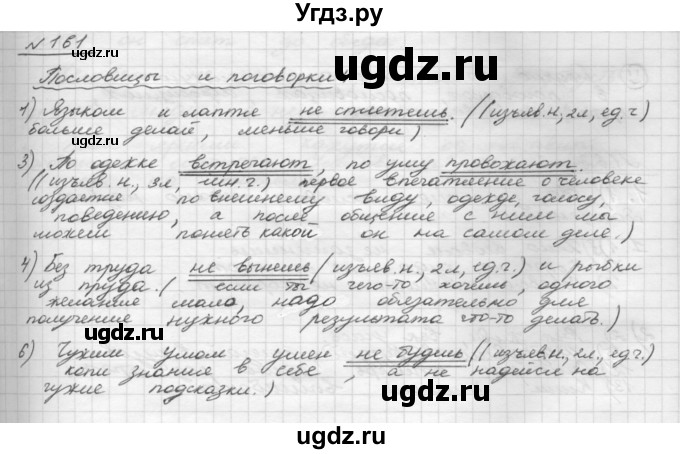 Угдз.ру
№161
Пословицы и поговорки
1) Языком и лаптя не сплетешь. ((изъяв.н, 2л, ед.ч)
больше делай, меньше говори)
3) По одежке встречают, по уму провожают.
((изъяв.н., 3л, мн.ч.) первое впечатление о человеке
создается по внешнему виду, одежде, голосу,
поведению, а после общение с ним мы
можем понять какой он на самом деле.)
4) Без труда не вынешь (изъяв.н., 2л, ед.ч.) и рыбки
из пруда. ( если ты чего-то хочешь, одного
желание мало, надо обязательно для
получение нужного результата что-то делать.)
6) Чужим умом умен не будешь ((изъяв.н., 2л., ед.ч.)
копи знание в себе, а не надейся на
чужие подсказки.)
ugdz.ru
ugdz.ru
ugdz.ru
ugdz.ru
ugdz.ru
ugdz.ru
ugdz.ru
ugdz.ru
ugdz.ru